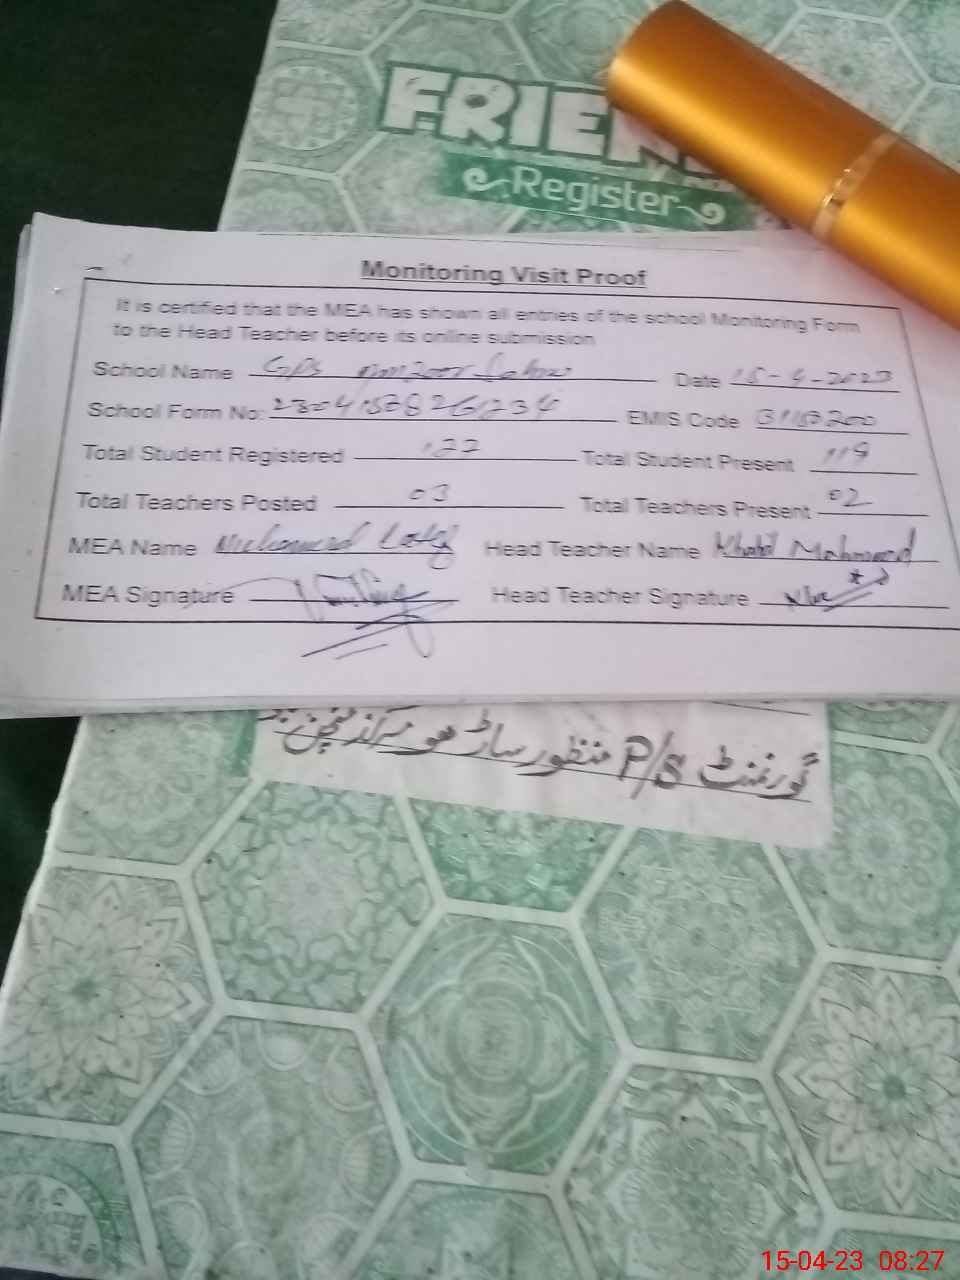 FRIEN
Register
Monitoring Visit Proof
It is certified that the MEA has shown all entries of the school Monitoring Form
to the Head Teacher before its online submission
School Name GPS Date 15-4-2023
School Form No: EMIS Code
Total Student Registered 122 Total Student Present 119
Total Teachers Posted 03 Total Teachers Present 02
MEA Name Muhammad Head Teacher Name Khalil Mahmood
MEA Signature Head Teacher Signature
گورنمنٹ P/S منظور سارٹھو مرکز
15-04-23 08:27